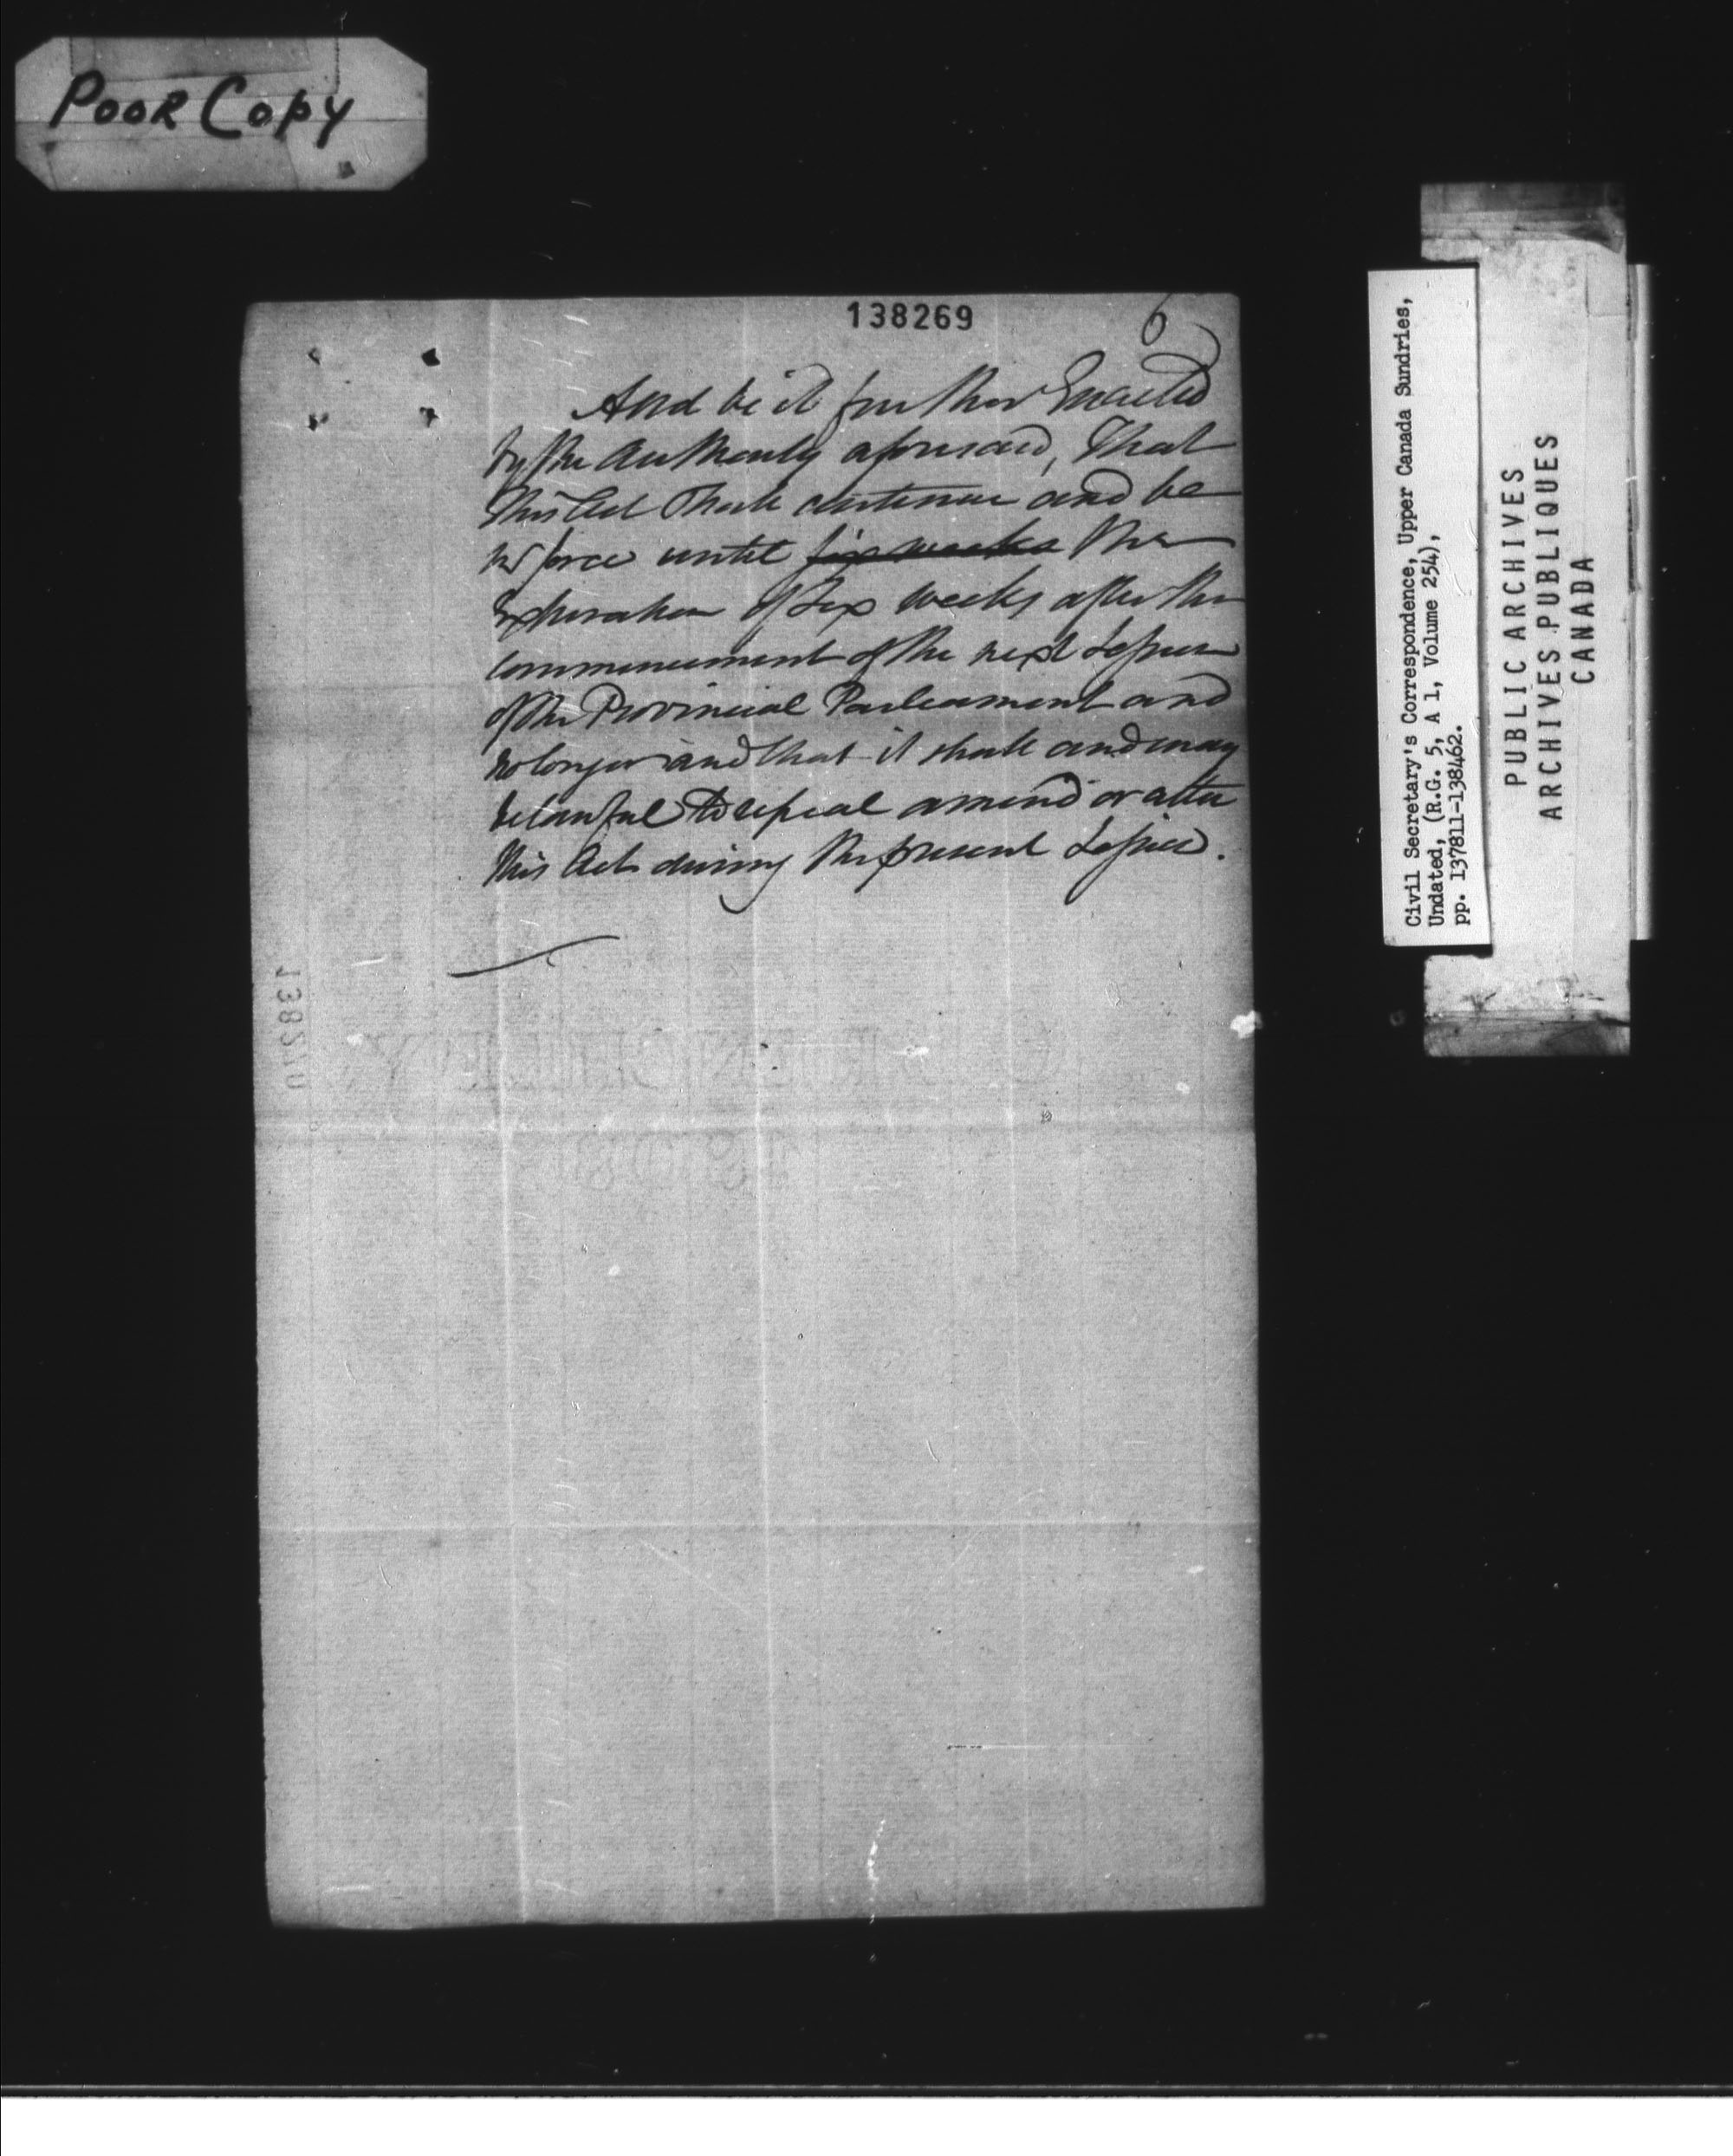 POOR COPY
138269
6
And be it further Enacted
by the Authority aforesaid, That
this Act shall continue and be
in force until six weeks the
expiration of six weeks after the
commencement of the next Session
of the Provincial Parliament and
no longer and that it shall and may
be lawful to repeal amend or alter
this Act during the present Session.
138270
1808
Civil Secretary's Correspondence, Upper Canada Sundries,
Undated, (R.G. 5, A 1, Volume 254),
pp. 137811-138462.
PUBLIC ARCHIVES
ARCHIVES PUBLIQUES
CANADA